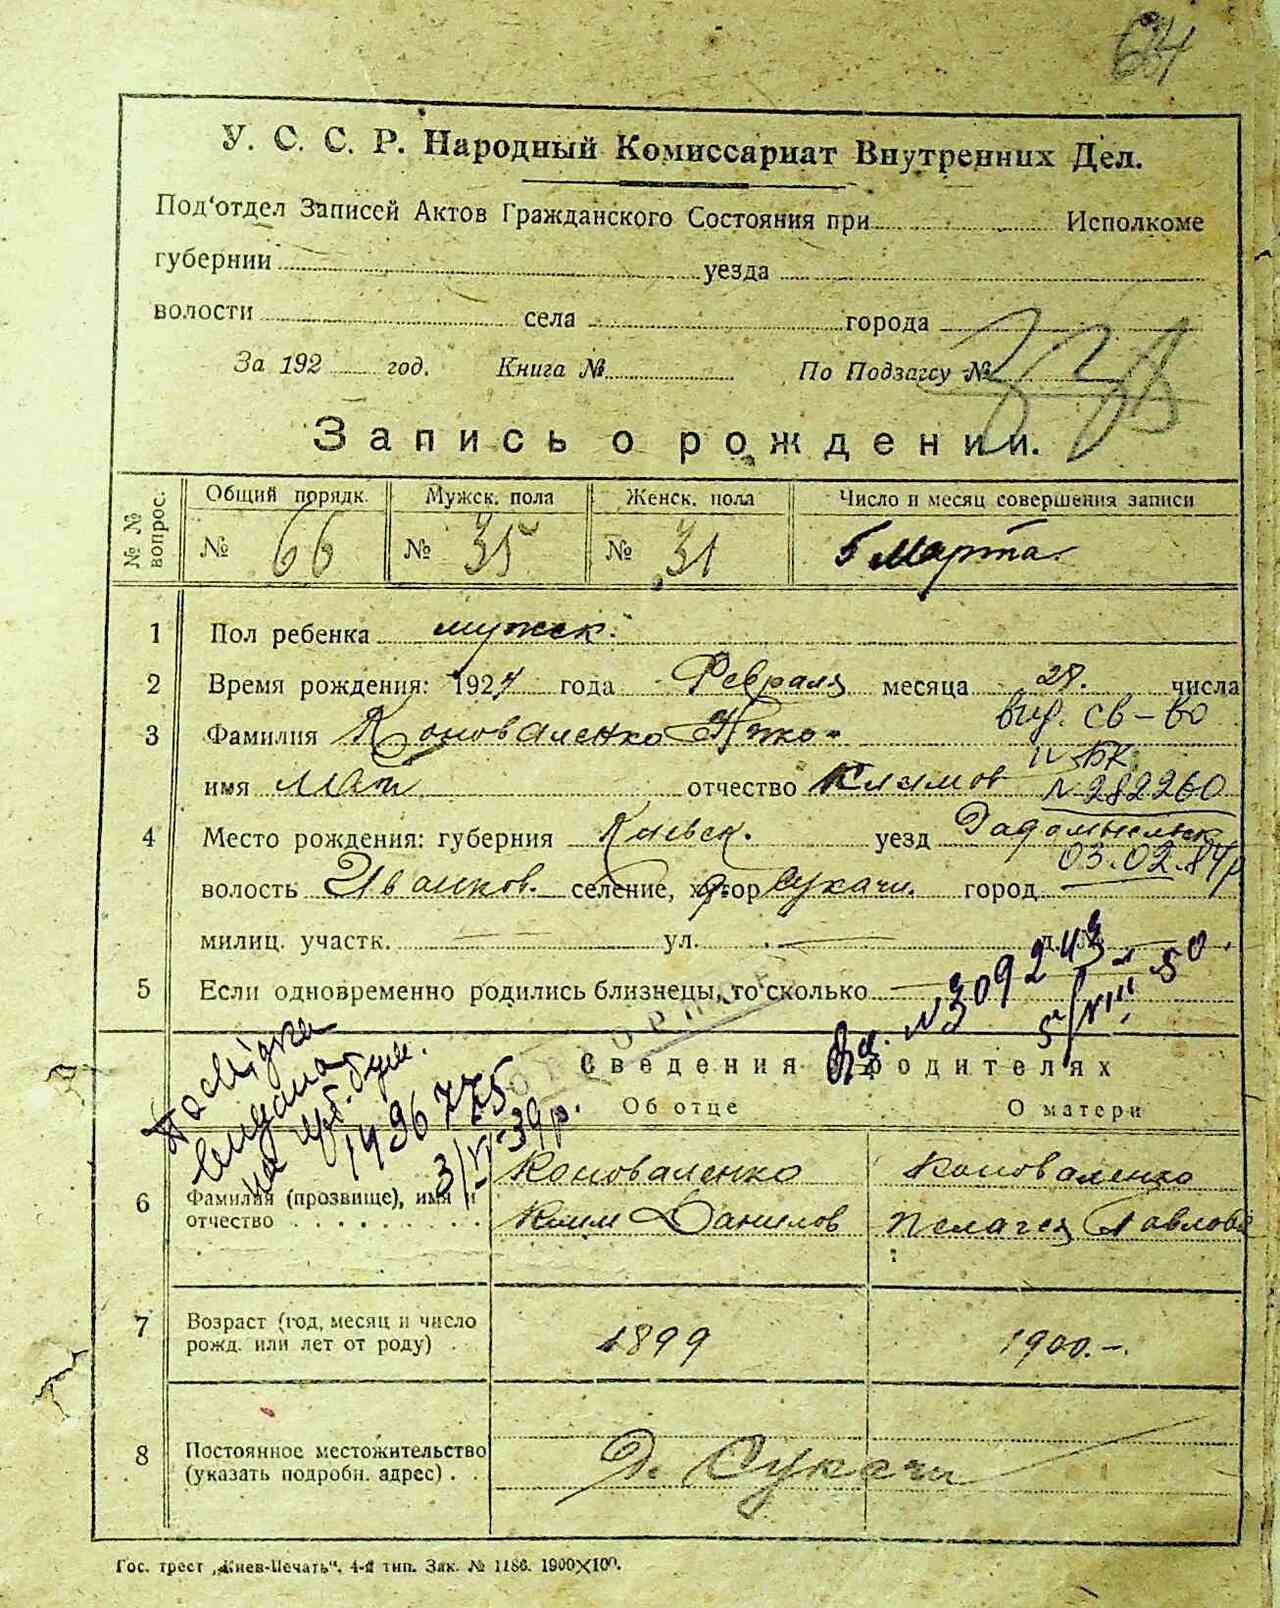 64
У. С. С. Р. Народный Комиссариат Внутренних Дел.
Под'отдел Записей Актов Гражданского Состояния при Исполкоме
губернии уезда
волости села города
За 192 год. Книга № По Подзагсу №
338
Запись о рождении.
№ № вопрос. Общий порядк. Мужск. пола Женск. пола Число и месяц совершения записи
№ 66 № 35 № 31 5 Марта
1 Пол ребенка мужск.
2 Время рождения: 1924 года Февраля месяца 28. числа
3 Фамилия Коноваленко
вид. св-во
имя отчество Климов
ІV-БК
№ 282260
4 Место рождения: губерния Киевск. уезд Радомысльск
03.02.84р
волость Иванков. селение, хутор д. Сукачи. город
милиц. участк. ул.
5 Если одновременно родились близнецы, то сколько
Вд. № 309243
5/VIII 50
Сведения о родителях
видана
1496775
3/VI-39р.
Об отце О матери
6 Фамилия (прозвище), имя и отчество
Коноваленко Коноваленко
Клим Данилов Пелагея Павловa
7 Возраст (год, месяц и число рожд. или лет от роду) 1899 1900.-.
8 Постоянное местожительство (указать подробн. адрес) Д. Сукачи
Гос. трест „Киев-Печать“, 4-я тип. Зак. № 1186. 1900×100.